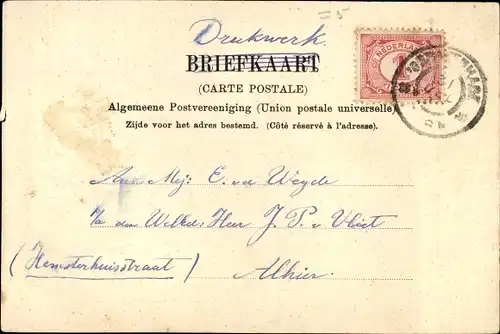 = 5
Drukwerk
BRIEFKAART
(CARTE POSTALE)
Algemeene Postvereeniging (Union postale universelle)
Zijde voor het adres bestemd. (Côté réservé à l'adresse).
NEDERLAND
1
Aan Mej: E. v.d. Weyde
p/a den WelEd: Heer J. P. v Vliet
(Hemsterhuisstraat) Alhier.